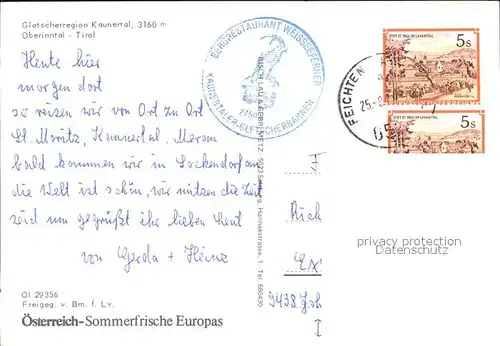 Gletscherregion Kaunertal, 3160 m
Oberinntal - Tirol
Heute hier
morgen dort
so reisen wir von Ort zu Ort
St. Moritz, Kaunertal, Meran
bald kommen wir in Lockendorf an
die Welt ist schön, wir nützen die Zeit
seid um gegrüßt ihr lieben Leut
von Gerda + Heinz
OI 29356
Freigeg. v. Bm. f. Lv.
Österreich-Sommerfrische Europas
BERGRESTAURANT WEISSEEFERNER
2750
KAUNERTALER-GLETSCHERBAHNEN
5023 Salzburg, Hannakstrasse, 1 Tel 660430
FEICHTEN
25.-
STIFT ST. PAUL IM LAVANTTAL
5s
STIFT ST. PAUL IM LAVANTTAL
5s
F
Rich
9438
I
privacy protection
Datenschutz